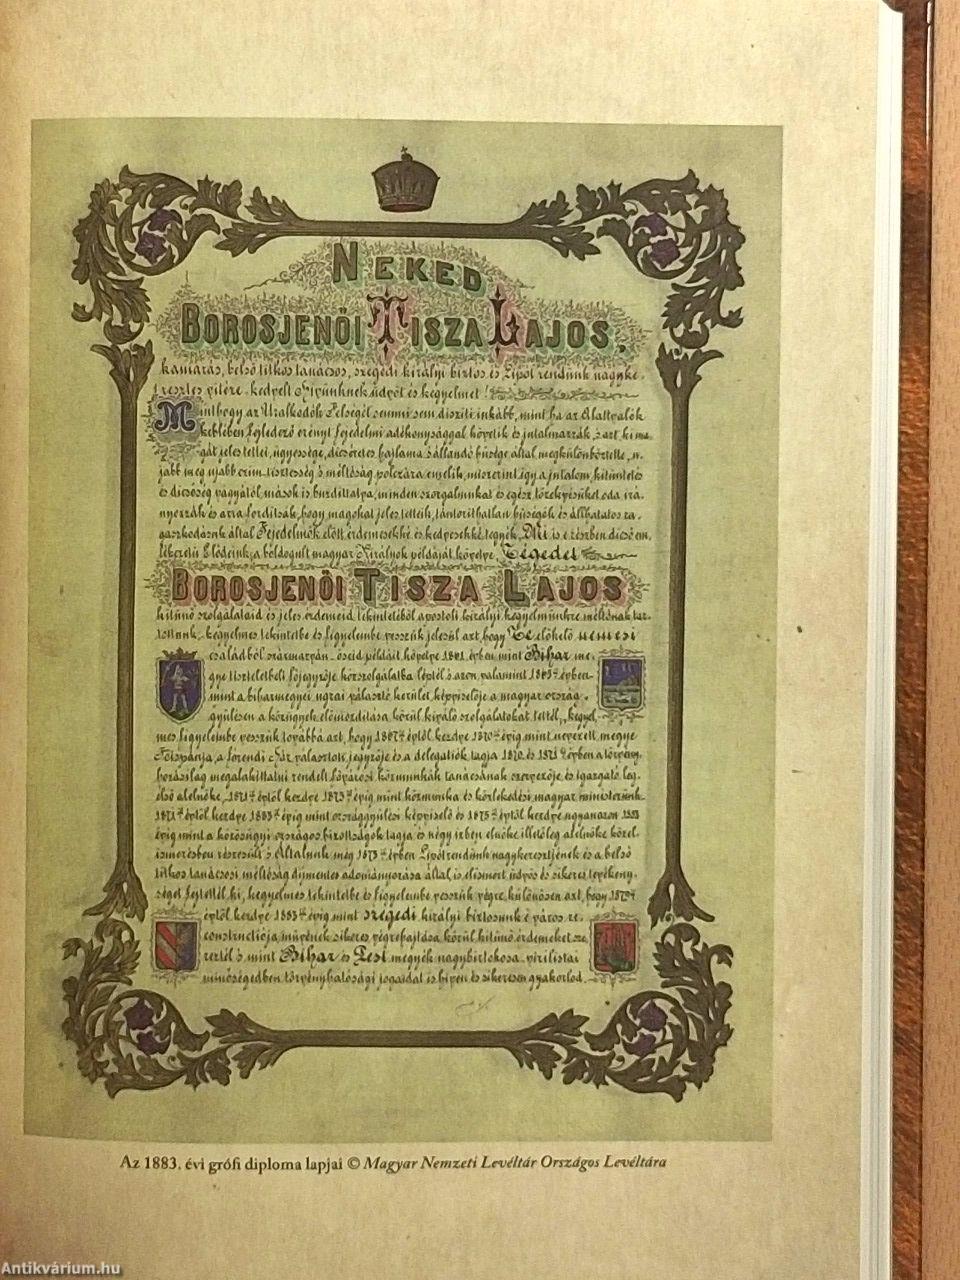 NEKED
BOROSJENŐI TISZA LAJOS,
kamarás, belső titkos tanácsos, szegedi királyi biztos és Lipót rendünk nagyke-
resztes vitéze, kedvelt Hivünknek üdvöt és kegyelmet!
Minthogy az Uralkodók Felségét semmi sem disziti inkább, mint ha az Alattvalók
keblében fejledező erényt fejedelmi adékonysággal követik és jutalmazzák, s azt, ki ma-
gát jeles tettei, ügyessége, dicséretes hajlama s állandó hűsége által megkülönböztette, u-
jabb meg ujabb czim, tisztesség s méltóság polczára emelik, miszerint így a jutalom, kitüntetés
és dicsőség vágyától mások is buzdittatva, minden szorgalmukat és egész törekvésüket oda irá-
nyozzák és arra forditsák, hogy magokat jeles tetteik, tántorithatlan hűségök és állhatatos ra-
gaszkodásuk által Fejedelmök előtt érdemesekké és kedvesekké tegyék, Mi is e részben dicső em-
lékezetű Elődeink, a boldogult magyar Királyok példáját követve, Tégedet
BOROSJENŐI TISZA LAJOS
kitünő szolgálataid és jeles érdemeid tekintetéből apostoli királyi kegyelmünkre méltónak tar-
tottunk, kegyelmes tekintetbe és figyelembe vesszük jelesül azt, hogy Te előkelő nemesi
családból származván őseid példáit követve 1861 évben mint Bihar me-
gye tiszteletbeli főjegyzője közszolgálatba léptél s azon, valamint 1865 évben
mint a biharmegyei ugrai választó kerület képviselője a magyar ország-
gyűlésen a közügyek előmozditása körül kiváló szolgálatokat tettél, kegyel-
mes figyelembe vesszük továbbá azt, hogy 1867 évtől kezdve 1870 évig mint nevezett megye
Főispánja, a főrendi Ház választott jegyzője és a delegatiók tagja 1870 és 1871 évben a törvény-
hozásilag megalakittatni rendelt fővárosi közmunkák tanácsának szervezője és igazgató leg-
első alelnöke, 1871 évtől kezdve 1873 évig mint közmunka és közlekedési magyar ministerünk
1871 évtől kezdve 1883 évig mint országgyűlési képviselő és 1875 évtől kezdve ugyanazon 1883
évig mint a közösügyi országos bizottságok tagja és négy izben elnöke illetőleg alelnöke közel-
ismerésben részesült s Általunk még 1873 évben Lipótrendünk nagykeresztjének és a belső
titkos tanácsosi méltóság dijmentes adományozása által is elismert üdvös és sikeres tevékeny-
séget fejtettél ki, kegyelmes tekintetbe és figyelembe vesszük végre, különösen azt, hogy 1879
évtől kezdve 1883 évig mint szegedi királyi biztosunk e város re-
constructiója művének sikeres végrehajtása körül kitünő érdemeket sze-
reztél s mint Bihar és Pest megyék nagybirtokosa virilistai
minőségedben törvényhatósági jogaidat is hiven és sikeresen gyakorlod.
Az 1883. évi grófi diploma lapjai © Magyar Nemzeti Levéltár Országos Levéltára
Antikvárium.hu